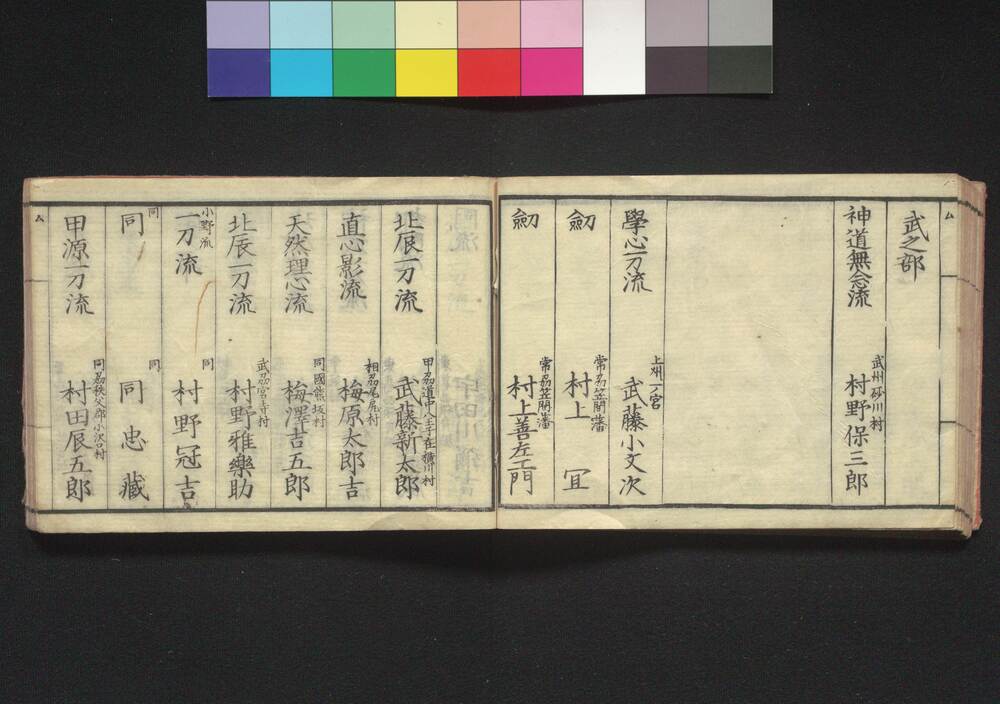 ム
武之部
神道無念流
武州砂川村
村野保三郎
學心一刀流
上州一宮
武藤小文次
劔
常刕笠間藩
村上 冝
劔
常刕笠間藩
村上善左エ門
北辰一刀流
甲刕道中八王子在横川村
武藤新太郎
直心影流
相刕尾尻村
梅原太郎吉
天然理心流
同國熊坂村
梅澤吉五郎
北辰一刀流
武刕宮寺村
村野雅樂助
小野流
一刀流
同
村野冠吉
同
同
同
同 忠藏
甲源一刀流
同刕秩父郡小沢口村
村田辰五郎
ム